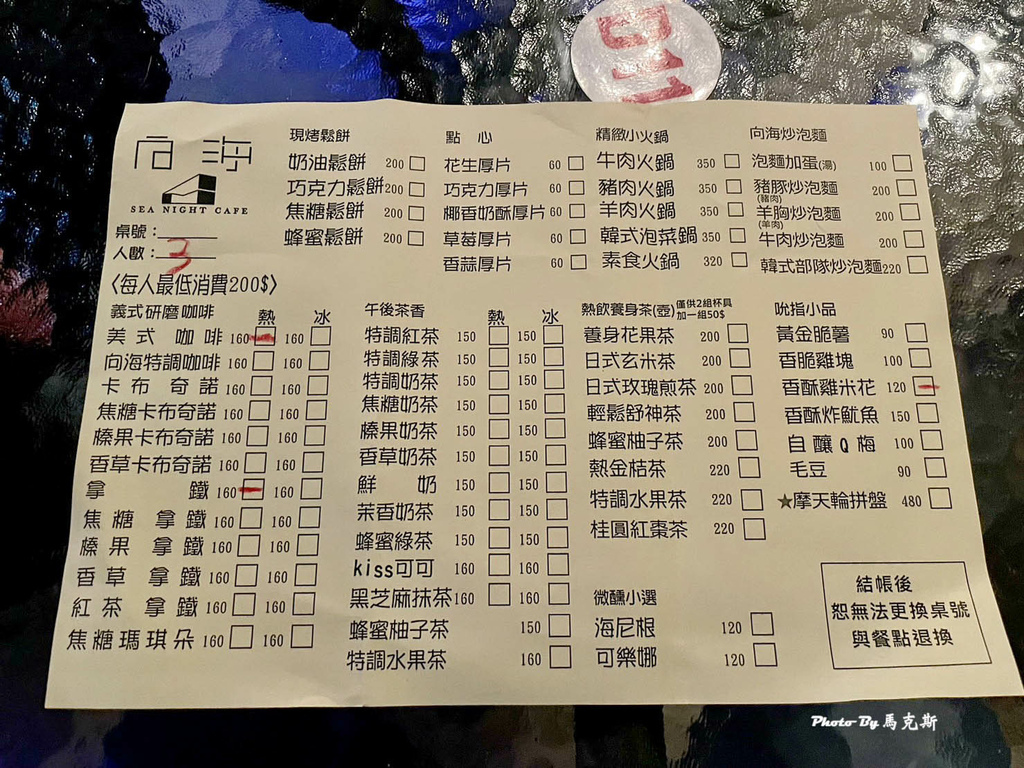 向海
SEA NIGHT CAFE
桌號：
人數：3
〈每人最低消費200$〉
現烤鬆餅
奶油鬆餅 200
巧克力鬆餅 200
焦糖鬆餅 200
蜂蜜鬆餅 200
點心
花生厚片 60
巧克力厚片 60
椰香奶酥厚片 60
草莓厚片 60
香蒜厚片 60
精緻小火鍋
牛肉火鍋 350
豬肉火鍋 350
羊肉火鍋 350
韓式泡菜鍋 350
素食火鍋 320
向海炒泡麵
泡麵加蛋(湯) 100
豬豚炒泡麵 200
(豬肉)
羊胸炒泡麵 200
(羊肉)
牛肉炒泡麵 200
韓式部隊炒泡麵 220
義式研磨咖啡 熱 冰
美式咖啡 160 160
向海特調咖啡 160 160
卡布奇諾 160 160
焦糖卡布奇諾 160 160
榛果卡布奇諾 160 160
香草卡布奇諾 160 160
拿鐵 160 160
焦糖拿鐵 160 160
榛果拿鐵 160 160
香草拿鐵 160 160
紅茶拿鐵 160 160
焦糖瑪琪朵 160 160
午後茶香 熱 冰
特調紅茶 150 150
特調綠茶 150 150
特調奶茶 150 150
焦糖奶茶 150 150
榛果奶茶 150 150
香草奶茶 150 150
鮮奶 150 150
茉香奶茶 150 150
蜂蜜綠茶 150 150
kiss可可 160 160
黑芝麻抹茶 160 160
蜂蜜柚子茶 150
特調水果茶 160
熱飲養身茶(壺) 僅供2組杯具
加一組50$
養身花果茶 200
日式玄米茶 200
日式玫瑰煎茶 200
輕鬆舒神茶 200
蜂蜜柚子茶 200
熱金桔茶 220
特調水果茶 220
桂圓紅棗茶 220
微醺小選
海尼根 120
可樂娜 120
吮指小品
黃金脆薯 90
香脆雞塊 100
香酥雞米花 120
香酥炸魷魚 150
自釀Q梅 100
毛豆 90
★摩天輪拼盤 480
結帳後
恕無法更換桌號
與餐點退換
Photo By 馬克斯